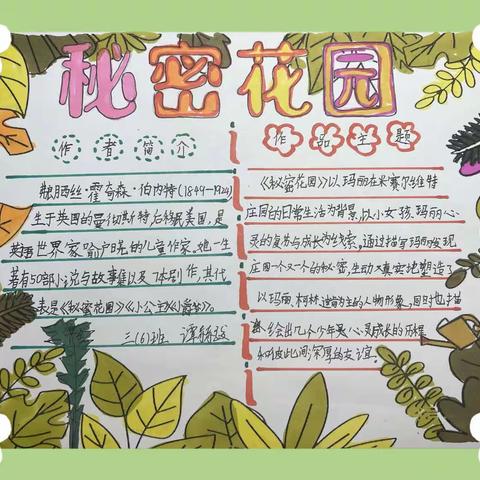 秘密花园
作者简介
弗朗西丝·霍奇森·伯内特(1849-1924)
生于英国的曼彻斯特,后移居美国,是
英语世界家喻户晓的儿童作家。她一生
著有50部小说与故事集以及7本剧作,其代
表是《秘密花园》《小公主》《小爵爷》。
三(6)班 谭
作品主题
《秘密花园》以玛丽在米赛尔维特
庄园的日常生活为背景,以小女孩玛丽心
灵的复苏与成长为线索,通过描写玛丽发现
庄园一个又一个的秘密,生动真实地塑造了
以玛丽、柯林、迪肯为主的人物形象,同时也描
绘会出几个少年灵心灵成长的历程
和彼此间深厚的友谊。